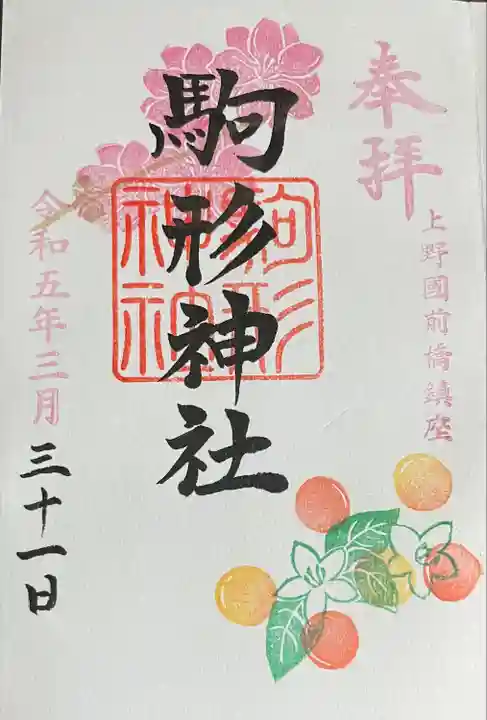 奉拝
上野國前橋鎮座
駒形神社
駒形神社
令和五年三月三十一日